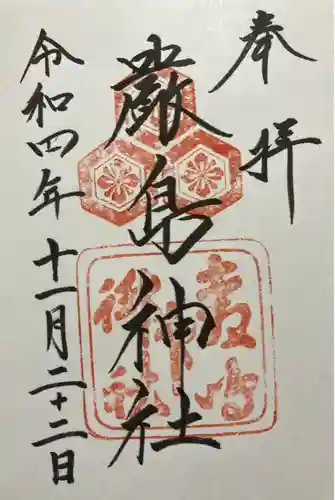 奉拝
厳島神社
令和四年十一月二十二日
厳島
神社